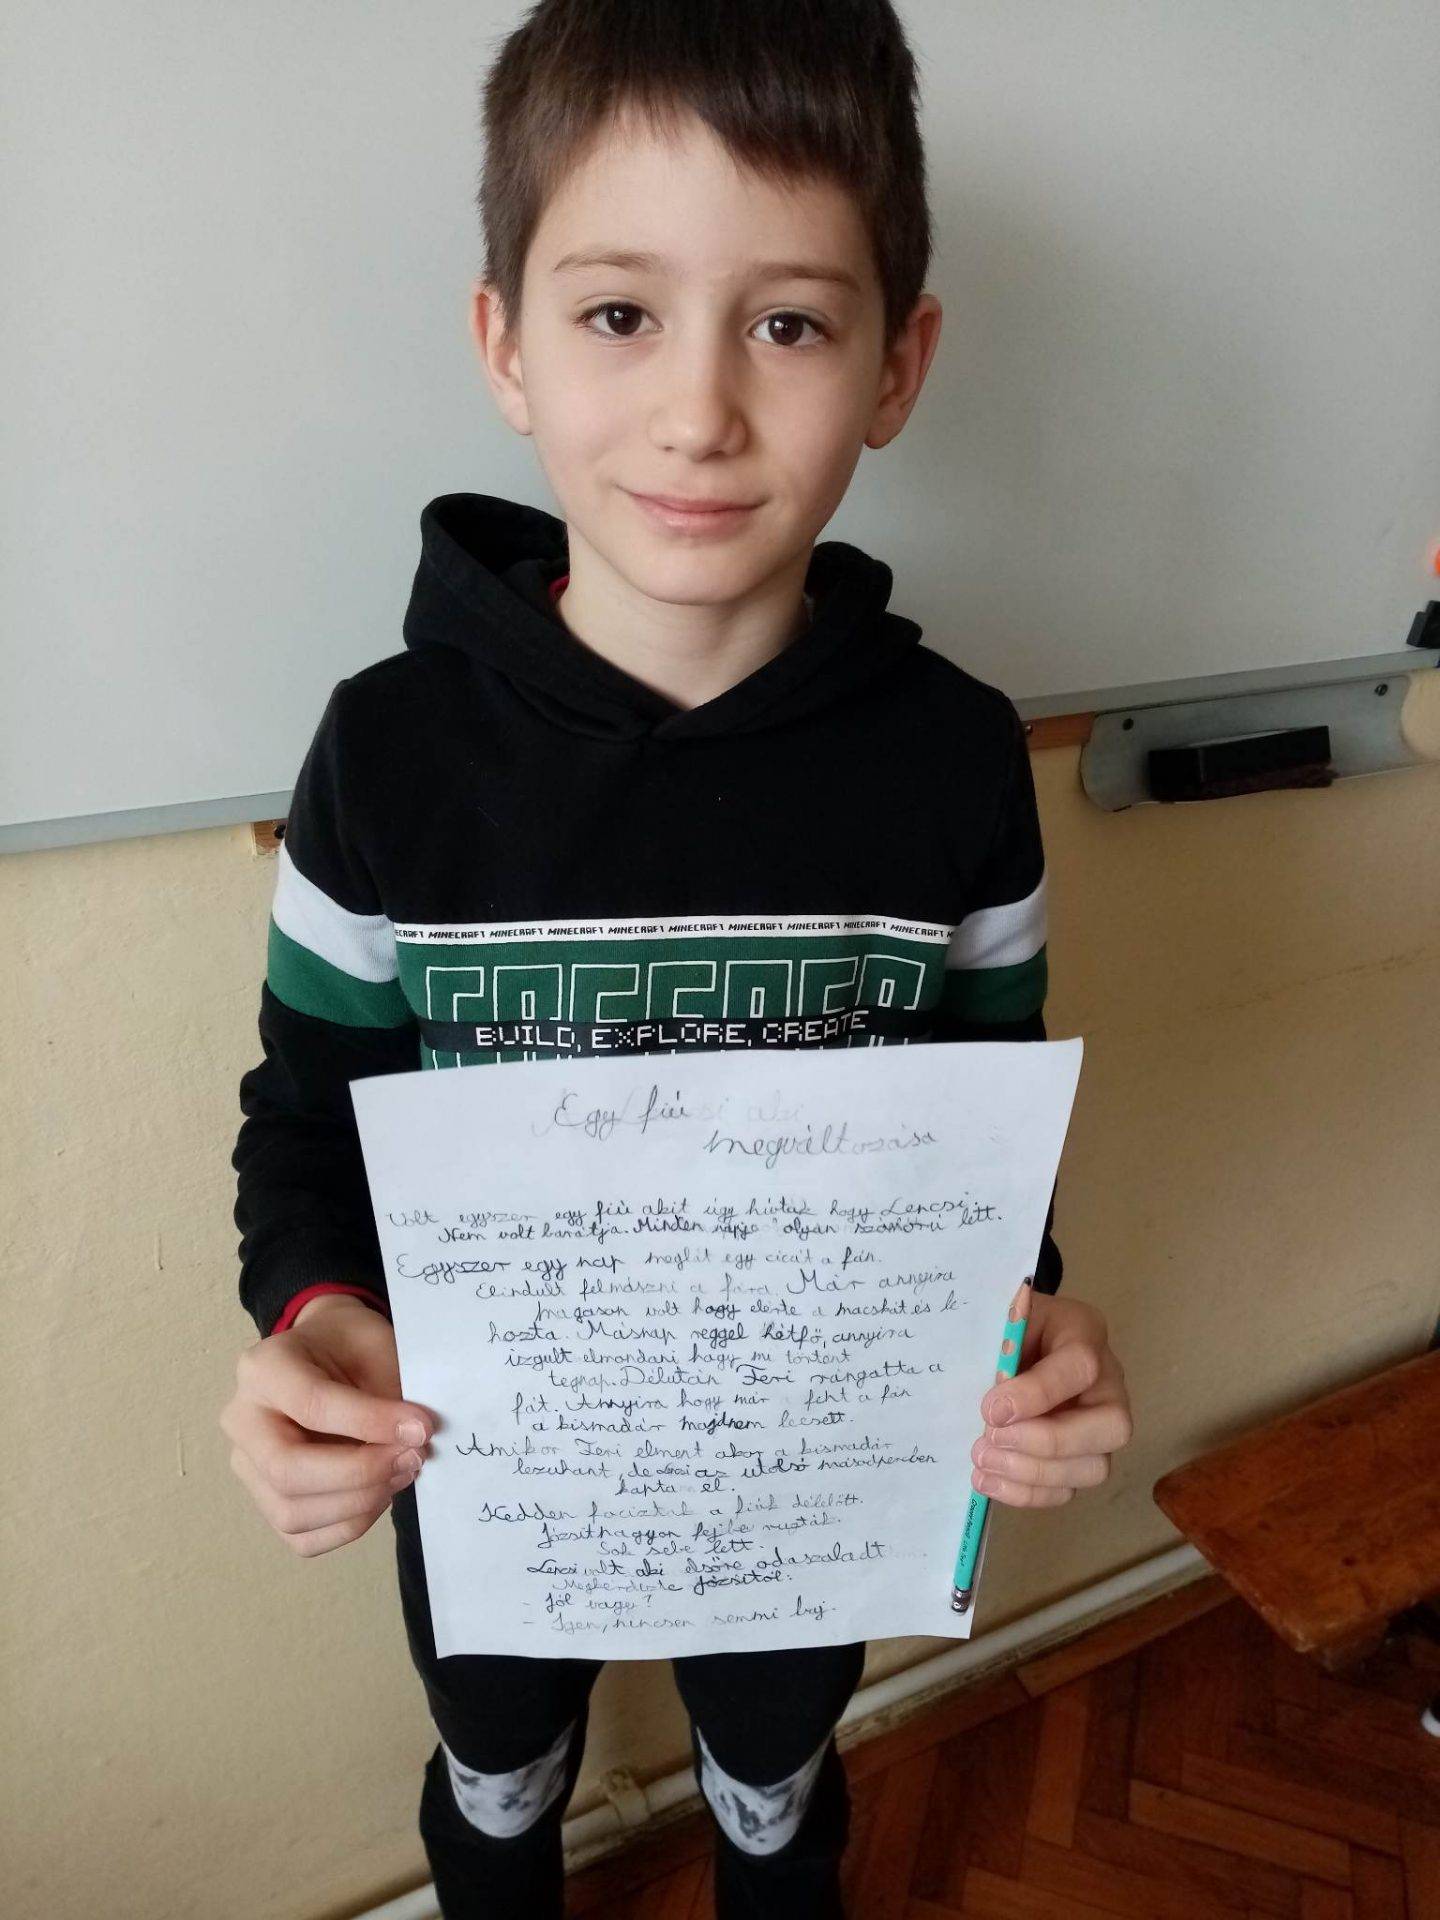 ECRAFT MINECRAFT MINECRAFT MINECRAFT MINECRAFT MINECRAFT MINECRAFT MINECRAFT MINECRAFT M
BUILD, EXPLORE, CREATE
Egy fiú
megváltozása
Volt egyszer egy fiú akit úgy hívtak hogy Lencsi.
Nem volt barátja. Minden napja olyan szomorú lett.
Egyszer egy nap meglát egy cicát a fán.
Elindult felmászni a fára. Már annyira
magason volt hogy elérte a macskát és le-
hozta. Másnap reggel hétfő, annyira
izgult elmondani hogy mi történt
tegnap. Délután Feri rángatta a
fát. Annyira hogy már a fán
a kismadár majdnem leesett.
Amikor Feri elment akor a kismadár
lezuhant, de az utolsó másodpercben
kapta el.
Kedden fociztak a fiúk délelőtt.
Józsit nagyon fejbe rugták.
Sok sebe lett.
Lencsi volt aki elsőre odaszaladt
Megkérdezte Józsitól:
- Jól vagy?
- Igen, nincsen semmi baj.